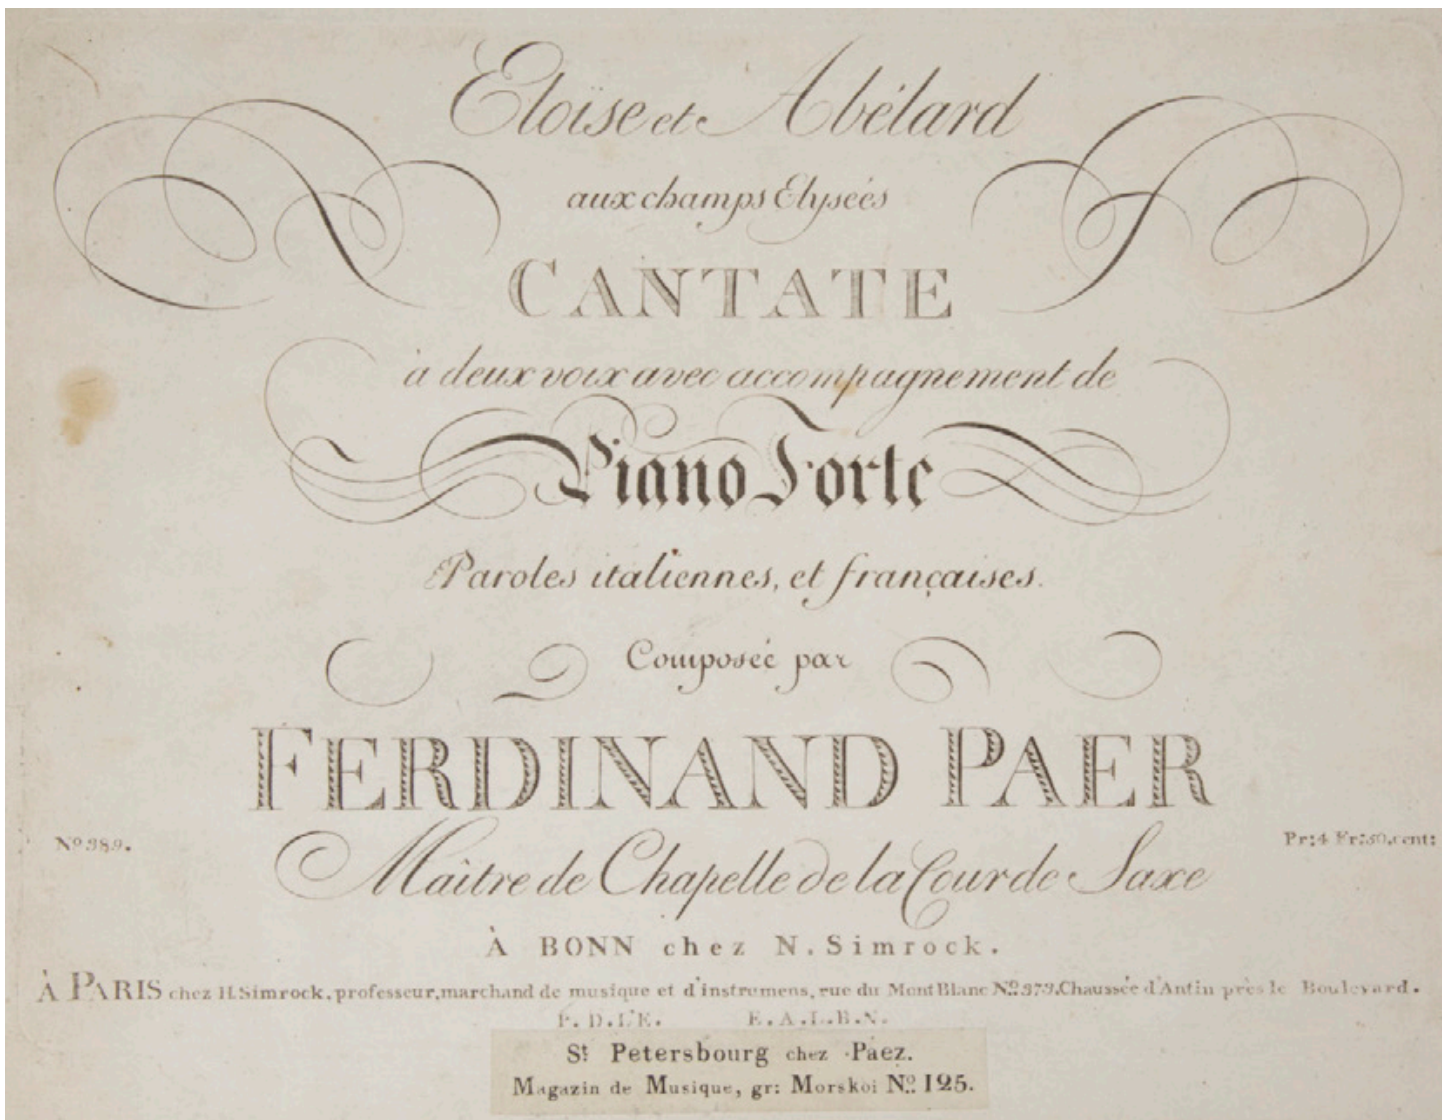 Eloïse et Abélard
aux champs Elysées
CANTATE
à deux voix avec accompagnement de
Piano Forte
Paroles italiennes, et françaises.
Composée par
FERDINAND PAER
No 389. Pr: 4 Fr: 50. cent:
Maître de Chapelle de la Cour de Saxe
À BONN chez N. Simrock.
À PARIS chez H. Simrock, professeur, marchand de musique et d'instrumens, rue du Mont Blanc No. 373. Chaussée d'Antin près le Boulevard.
P. D. L'E. E. A. L. B. N.
St Petersbourg chez Paez.
Magazin de Musique, gr: Morskoi No. 125.